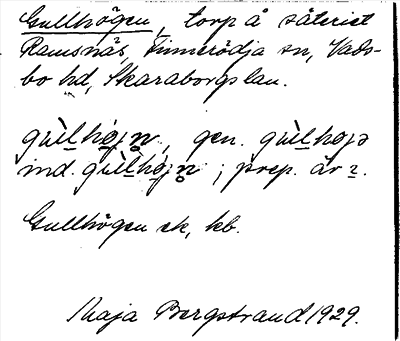 Gullhögen, torp å säteriet
Ramsnäs, Finnerödja sn, Vads-
bo hd, Skaraborgs län.
gùl̲hö̀jn̥, gen. gùl̲höjə
ind. gùl̲hö̀jn̥; prep. å
Gullhögen ek, kb.
Maja Bergstrand 1929.